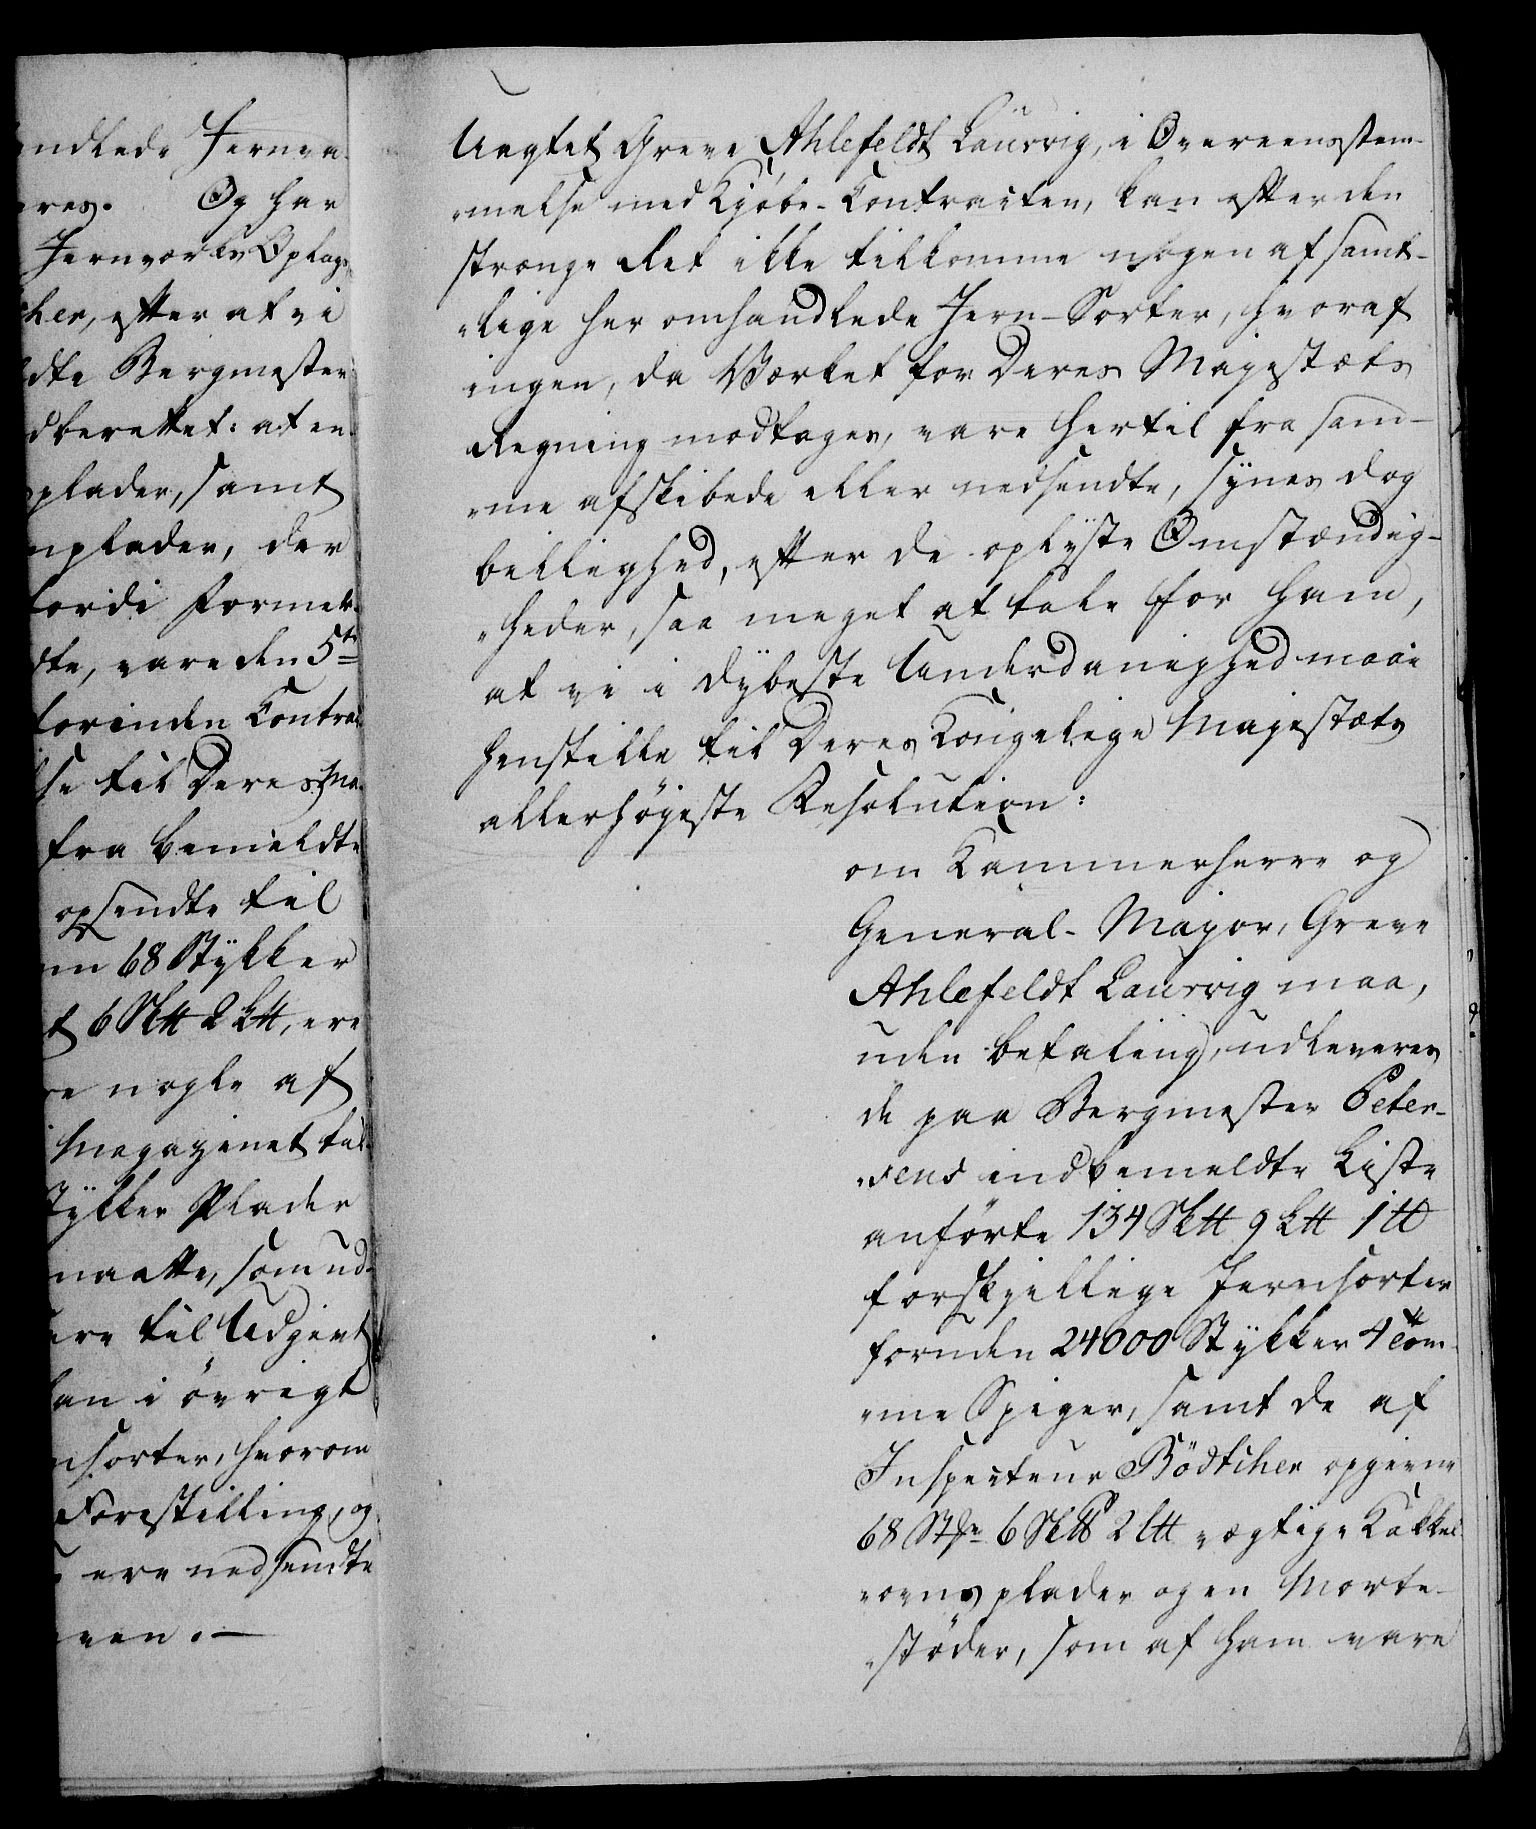 ndlede Jernva-
res. Og har
Jernværks Oplags
her, efter at vi
dte Bergmester
dberettet: at en
plader, samt
nplader, der
fordi Formel-
dte, vare den 5te
forinden Contra
se til Deres Ma-
fra bemeldte
opsendte til
68 Stykker
6 Sk℔ 2 L℔, ere
nogle af
Magazinet
Stykker Plader
maatte, som ud-
ere til Udgivt
kan i øvrigt
sorter, hvorom
Forestilling, og
ere nedsendte
ven. —
Uagtet Greve Ahlefeldt Laurvig, i Overeensstem-
„melse med Kjøbe-Contracten, kan efter den
strænge Ret ikke tilkomme nogen af samt-
„lige her omhandlede Jern-Sorter, hvoraf
ingen, da Værket for Deres Majestæts
Regning modtages, vare hertil fra sam-
„me afskibede eller nedsendte, synes dog
billighed, efter de oplyste Omstændig-
„heder, saa meget at tale for ham,
at vi i dybeste Underdanighed maae
henstille til Deres Kongelige Majestæts
allerhøyeste Resolution:
om Kammerherre og
General-Major, Greve
Ahlefeldt Laurvig maa,
uden betaling, udleveres
de paa Bergmester Peter-
„sens indbemeldte Liste
anførte 134 Sk℔ 9 L℔ 1 ℔
forskjellige Jernsorter
foruden 24000 Stykker 4 tom-
„me Spiger, samt de af
Inspecteur Bödtcher opgivne
68 Stkr 6 Sk℔ 2 L℔ vægtige Kakkel
„ovns plader og en Morte-
„støder, som af ham vare